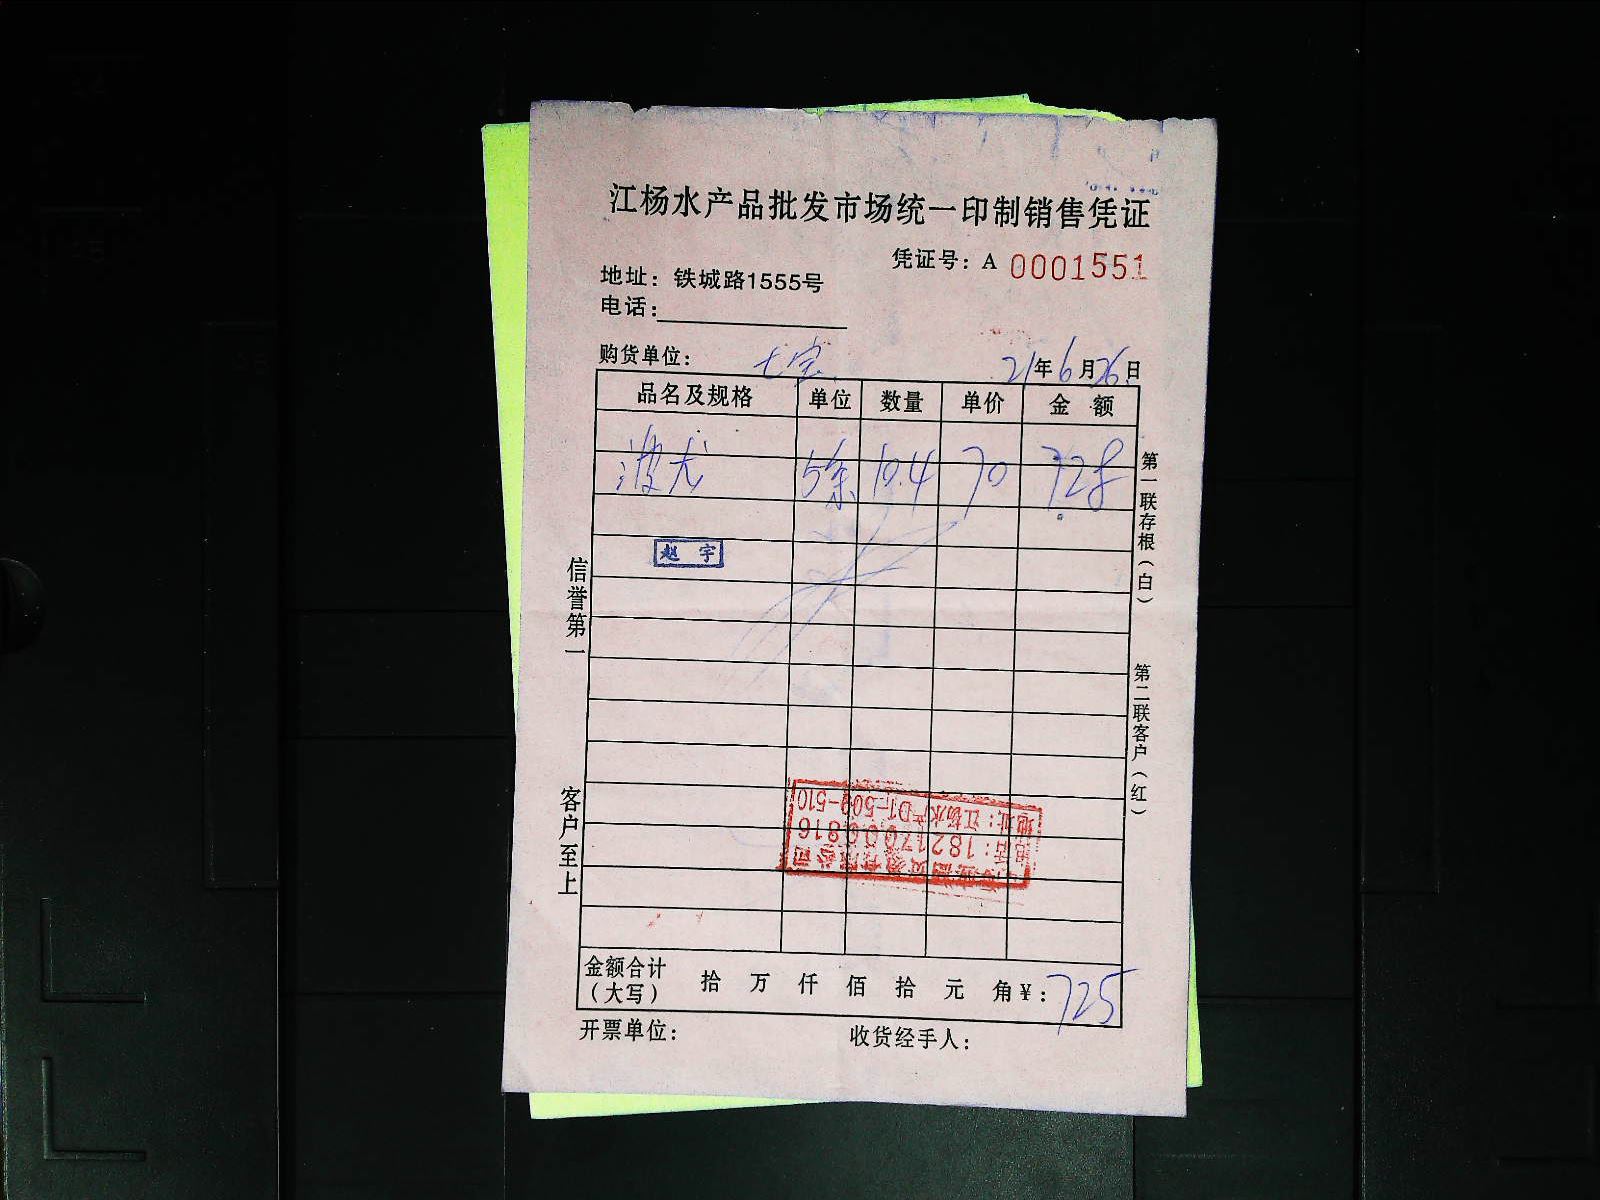 江杨水产品批发市场统一印制销售凭证
凭证号：A 0001551
地址：铁城路1555号
电话：
购货单位： 七宝 21年6月26日
品名及规格 单位 数量 单价 金额
波龙 5条 10.4 70 728
赵宇
信誉第一
客户至上
第一联存根（白）
第二联客户（红）
地址：江杨水产D1-509-510
电话：18217000816
金额合计（大写） 拾 万 仟 佰 拾 元 角 ¥：725
开票单位： 收货经手人：